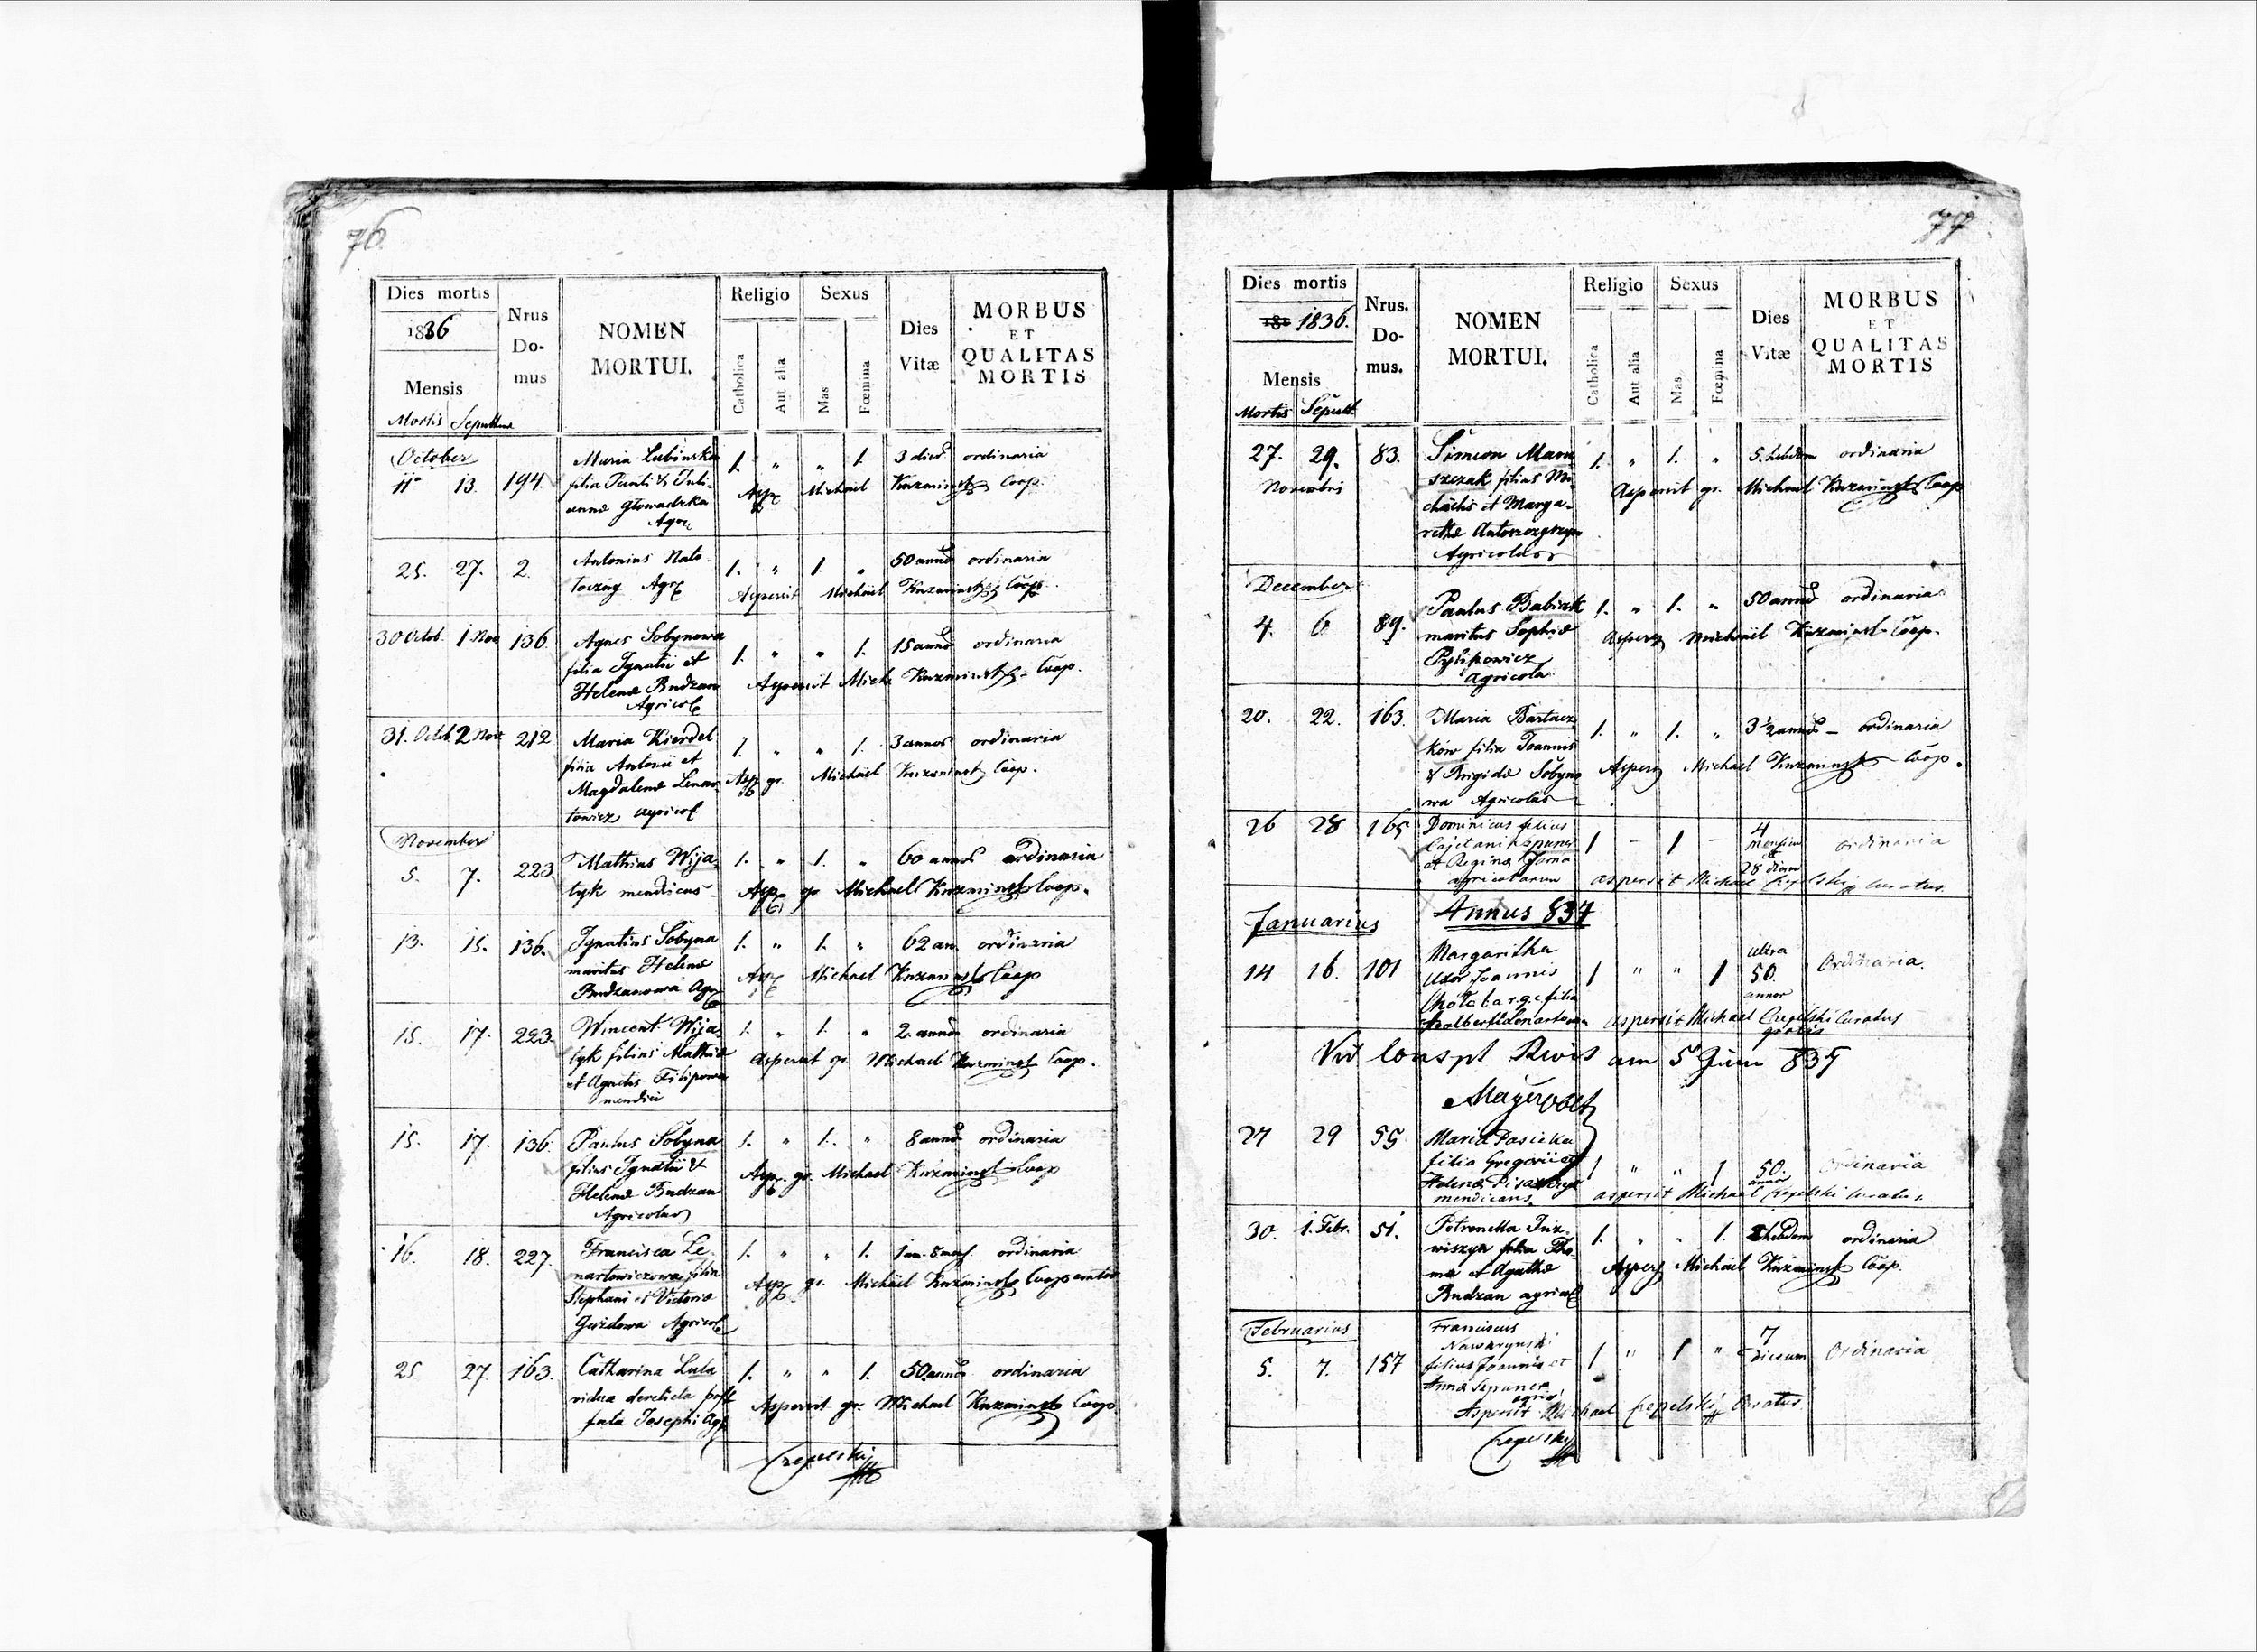 76.
Dies mortis
1836
Mensis
Mortis Sepulturæ
Nrus
Do-
mus
NOMEN
MORTUI.
Religio
Catholica
Aut alia
Sexus
Mas
Fœmina
Dies
Vitæ
MORBUS
ET
QUALITAS
MORTIS
October
11 13. 194. Maria Lubinska 1. " " 1. 3 dies ordinaria
filia Pauli & Juli-
annæ Głowadzka
Agr.
Asp. Michael Kuzminski Coop.
25. 27. 2. Antonius Nalo- 1. " 1. " 50 annos ordinaria
toczny Agr. Aspersit Michael Kuzminski Coop.
30 Octob. 1 Nov 136. Agnes Sobynowa 1. " " 1. 15 annos ordinaria
filia Ignatii et
Helenæ Budzan
Agricol.
Aspersit Mich. Kuzminski Coop.
31. Octob. 2 Nov 212 Maria Kierdel 1. " " 1. 3 annos ordinaria
filia Antonii et
Magdalenæ Lenar-
towicz agricol.
Asp. gr. Michael Kuzminski Coop.
November
5. 7. 223. Mathias Wija- 1. " 1. " 60 annos ordinaria
tyk mendicus Asp. gr Michael Kuzminski Coop.
13. 15. 136. Ignatius Sobyna 1. " 1. " 62 an. ordinaria
maritus Helenæ
Budzanowa Agr.
Asp. Michael Kuzminski Coop
15. 17. 223. Wincent. Wija- 1. " 1. " 2 annos ordinaria
tyk filius Mathiæ
et Agnetis Filipowa
mendici
Aspersit gr. Michael Kuzminski Coop.
15. 17. 136. Paulus Sobyna 1. " 1. " 8 annos ordinaria
filius Ignatii &
Helenæ Budzan
Agricolar
Asp. gr. Michael Kuzminski Coop
16. 18. 227. Francisca Le- 1. " " 1. 1 an. 8 mens. ordinaria
nartowiczowa filia
Stephani et Victoriæ
Gwizdowa Agricol.
Asp. gr. Michael Kuzminski Cooperator
25 27. 163. Catharina Lula 1. " " 1. 50 annos ordinaria
vidua derelicta post
fata Josephi Agr
Aspersit gr. Michael Kuzminski Coop
Crepelski
77
Dies mortis
1836.
Mensis
Mortis Sepult.
Nrus.
Do-
mus.
NOMEN
MORTUI.
Religio
Catholica
Aut alia
Sexus
Mas
Fœmina
Dies
Vitæ
MORBUS
ET
QUALITAS
MORTIS
27. 29. 83. Simeon Maru- 1. " 1. " 5. hebdom ordinaria
Novembris
szczak filius Mi-
chaelis et Marga-
rethæ
Agricolar
Aspersit gr. Michael Kuzminski Coop
December
4. 6 89. Paulus Babiak 1. " 1. " 50 annos ordinaria
maritus Sophiæ
Pylipowicz
agricola
Aspers Michael Kuzminski Coop.
20. 22. 163. Maria Bartacz- 1. " 1. " 3½ annos - ordinaria
ków filia Joannis
& Brigidæ Sobyno-
wa Agricolar
Aspers Michael Kuzminski Coop.
26 28 165 Dominicus filius 1 - 1 - 4 mensium et 28 dierum ordinaria
Cajetani
et Reginæ
agricolarum
aspersit Michael Crepelski Curatus.
Annus 837
Januarius
14 16. 101 Margaritha 1 " " 1 ultra 50. annor Ordinaria.
Uxor Joannis
filia
aspersit Michael Crepelski Curatus
gratis
Vid Conspt Rvis am 5 Juni 837
27 29 55 Maria Pasieka 1 " " 1 50. annor Ordinaria
filia Gregorii et
Helenæ
mendicans
aspersit Michael Crepelski Curatus.
30. 1. Febr. 51. Petronella Juz- 1. " " 1. hebdom ordinaria
wiszyn filia Tho-
mæ et Agathæ
Budzan agricol
Aspers Michael Kuzminski Coop.
Februarius
5. 7. 157 Franciscus 1 " 1 " 7 dierum Ordinaria
filius Joannis et
Annæ
Aspersit Michael Crepelski Curatus
Crepelski